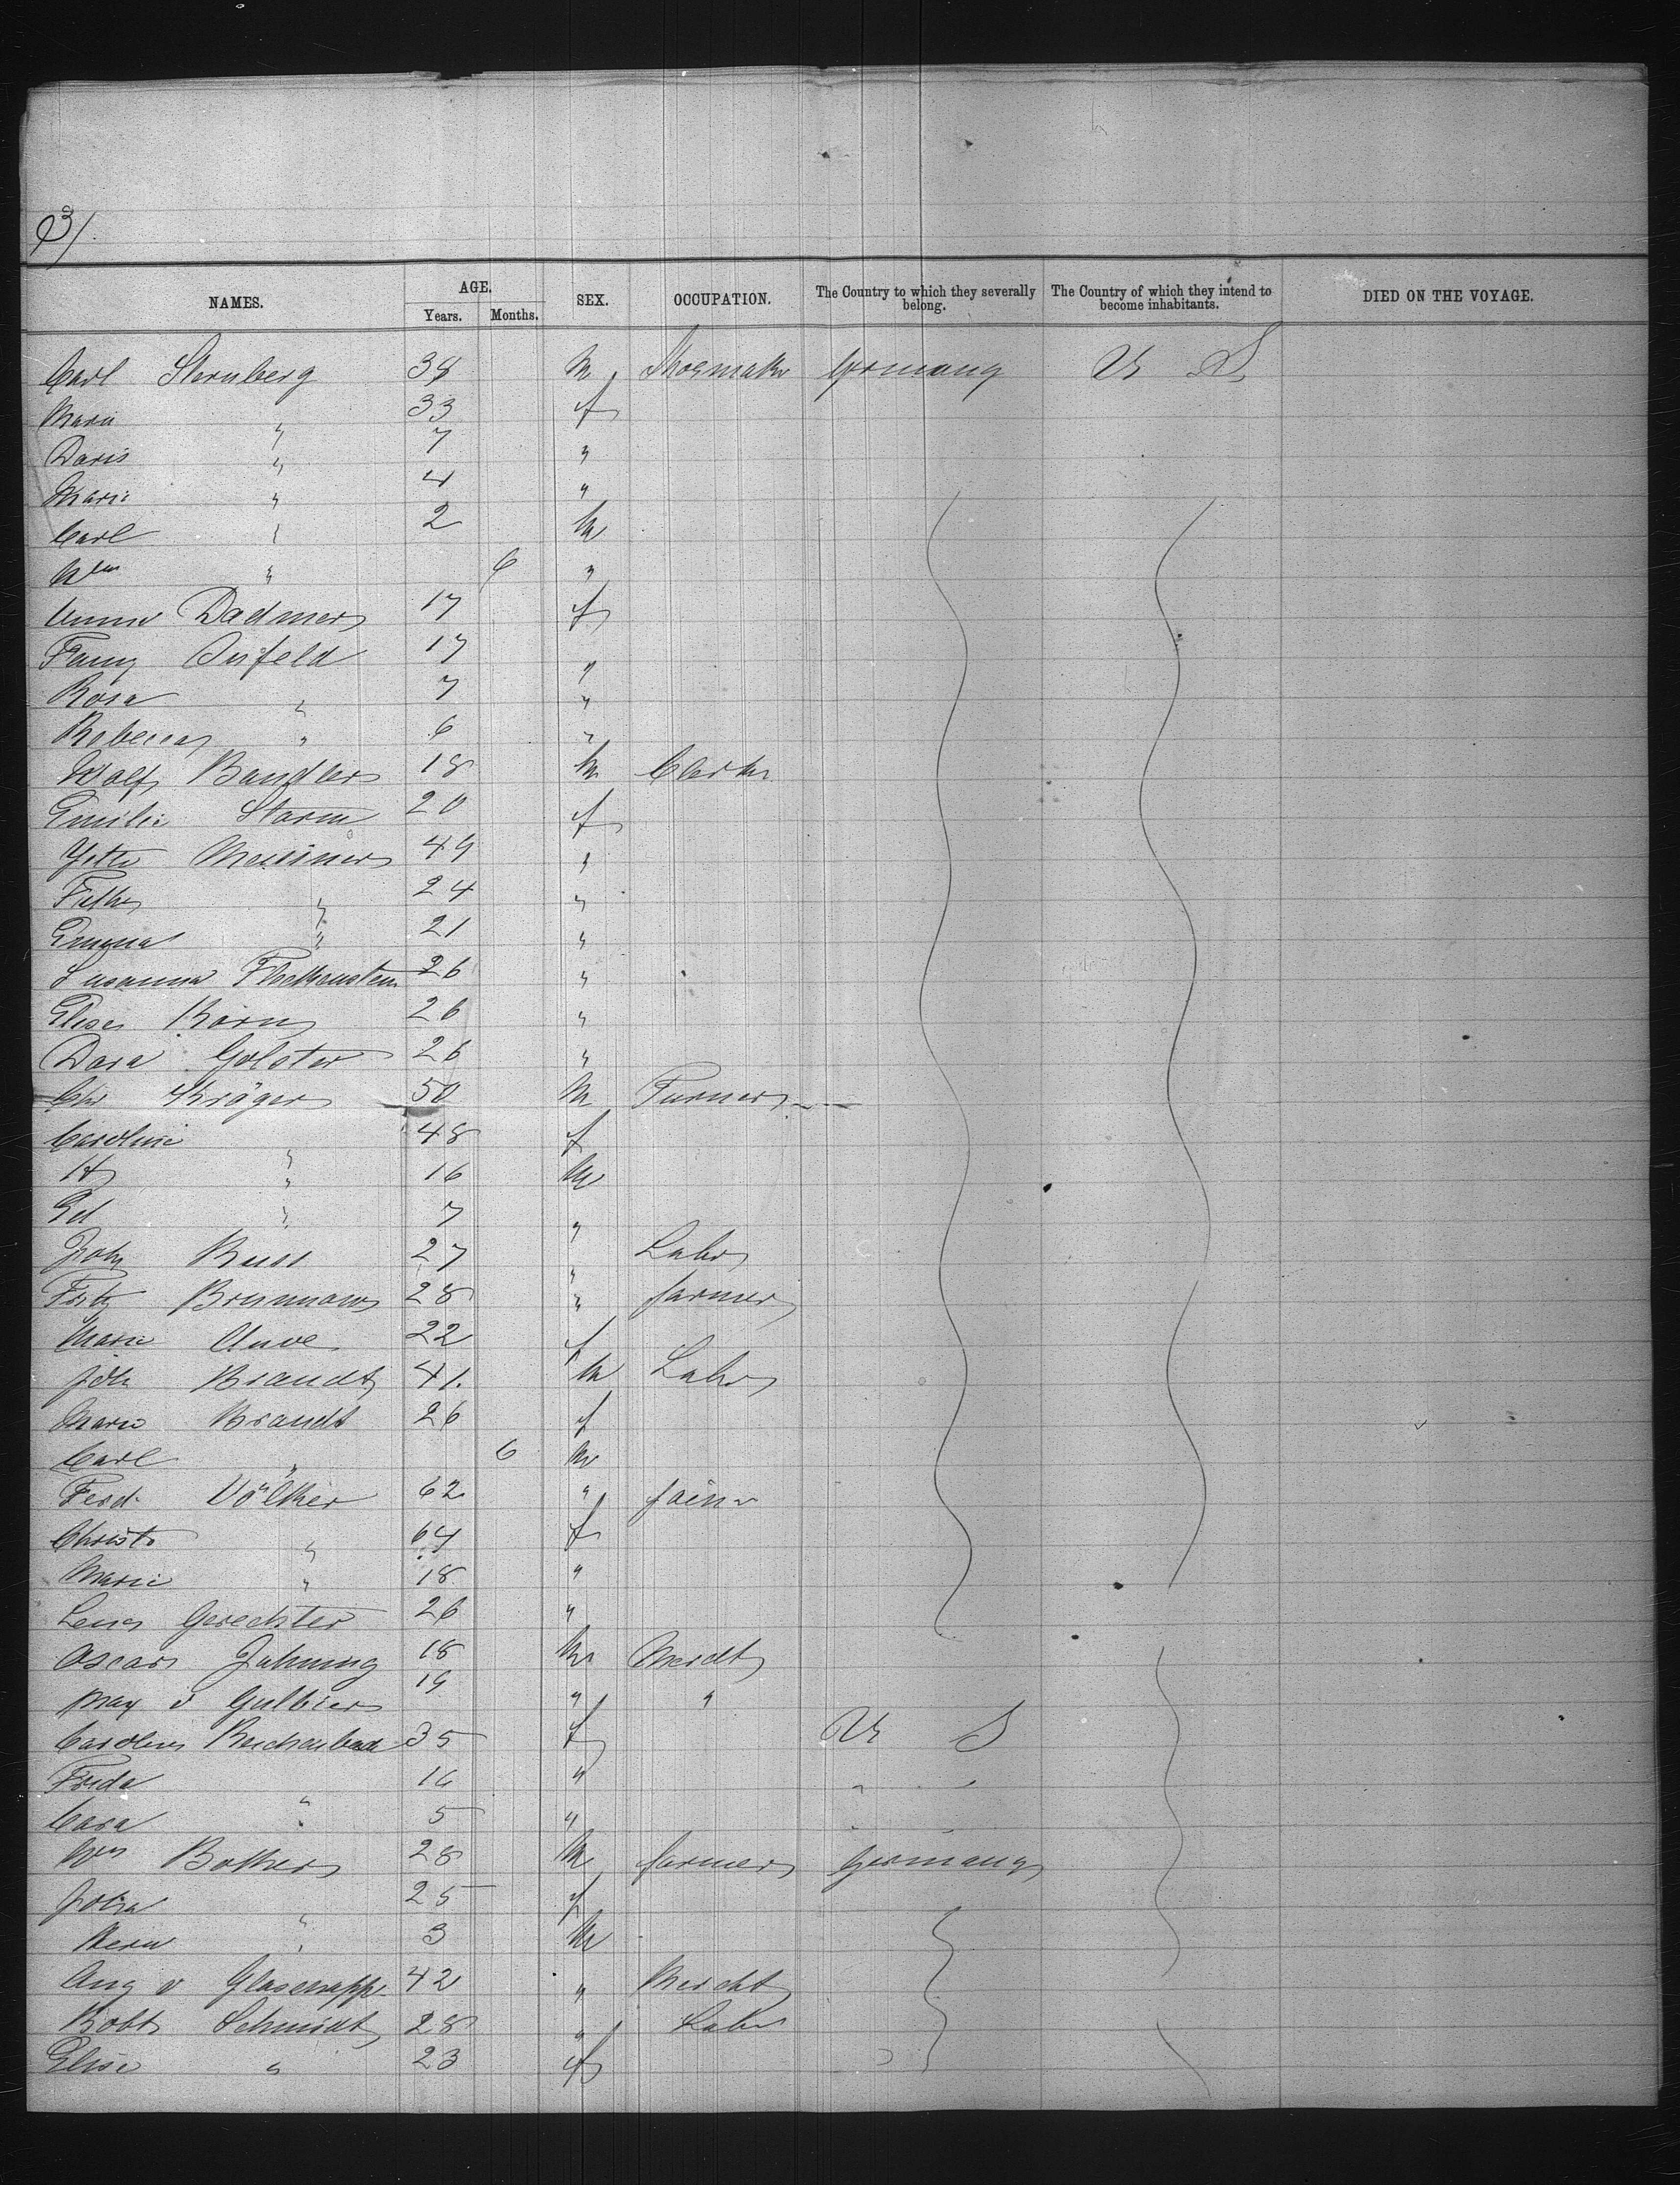 3/
NAMES. AGE. SEX. OCCUPATION. The Country to which they severally belong. The Country of which they intend to become inhabitants. DIED ON THE VOYAGE.
Years. Months.
Carl Sternberg 38 M Shoemaker Germany U S
Maria " 33 f
Doris " 7 "
Marie " 4 "
Carl " 2 M
Wm " 6 "
Anna Dadmers 17 f
Fanny 17 "
Rosa " 7 "
Rebecca " 6 "
Wolf Bandler 18 M Clerk
Emilie Storm 20 f
Jette Meissner 49 "
" 24 "
Emma " 21 "
Susanna Fleckenstein 26 "
Elise Korn 26 "
Dora Golster 26 "
Chr Kröger 50 M Turner
Caroline " 48 f
H " 16 M
Ed " 7 "
Joh Russ 27 " Labor
Fritz Brunnow 28 " farmer
Marie 22 f
Joh Brandt 41 M Labor
Marie Brandt 26 f
Carl " 6 M
Ferd. Völker 62 "
Christ " 64 f
Marie " 18 "
Lena Gerechter 26 "
Oscar Jahning 18 M Mercht
Max v 19 " "
Caroline Reichenbach 35 f U S
Frida " 16 " " "
Cara " 5 " " "
Wm Bothers 28 M farmer Germany
" 25 f
Herm " 3 M
Aug v Glasenapp 42 " Mercht
Robt Schmidt 28 " Labor
Elise " 23 f